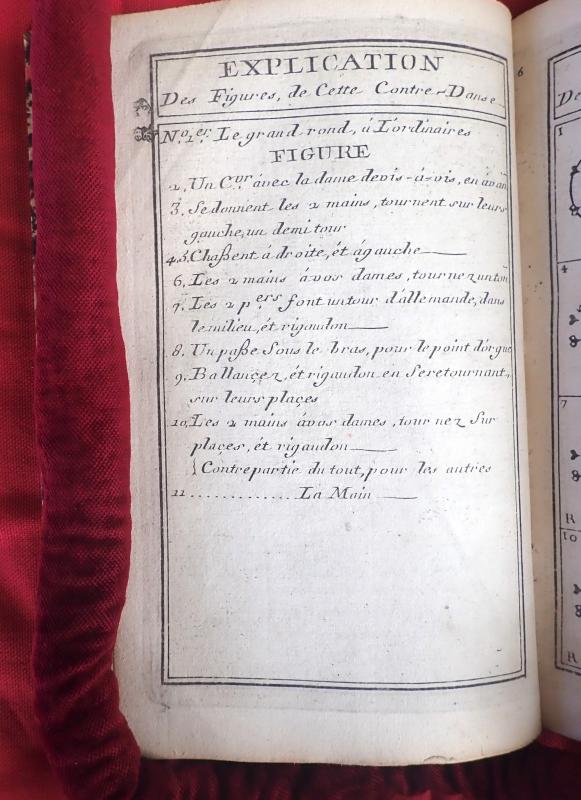 EXPLICATION
Des Figures, de Cette Contre-Danse
No. 1er. Le grand rond, à L'ordinaires
FIGURE
2. Un Cvr. avec la dame devis-à-vis, en avan
3. Se donnent les 2 mains, tournent sur leurs
gauche, un demi tour
4. 5. Chaßent à droite, ét à gauche
6. Les 2 mains à vos dames, tournez un tou
7. Les 2 pers font un tour d'allemande, dans
le milieu, ét rigaudon
8. Un paße Sous le bras, pour le point d'orgue
9. Ballançez, ét rigaudon en Se retournant,
sur leurs plaçes
10. Les 2 mains à vos dames, tour nez Sur
plaçes, ét rigaudon
{Contrepartie du tout, pour les autres
11 ............. La Main
6
De
1
4
7
R
10
R